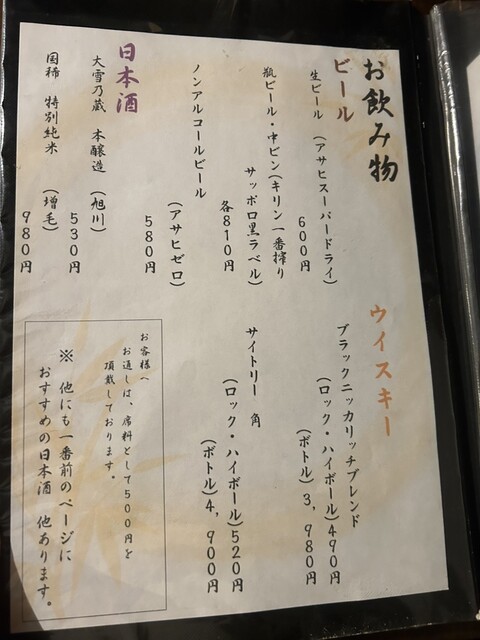 お飲み物
ビール
生ビール (アサヒスーパードライ)
600円
瓶ビール・中ビン(キリン一番搾り
サッポロ黒ラベル)
各810円
ノンアルコールビール
(アサヒゼロ)
580円
日本酒
大雪乃蔵 本醸造 (旭川)
530円
国稀 特別純米 (増毛)
980円
ウイスキー
ブラックニッカリッチブレンド
(ロック・ハイボール)490円
(ボトル)3,980円
サイトリー 角
(ロック・ハイボール)520円
(ボトル)4,900円
お客様へ
お通しは、席料として500円を
頂戴しております。
※ 他にも一番前のページに
おすすめの日本酒 他あります。